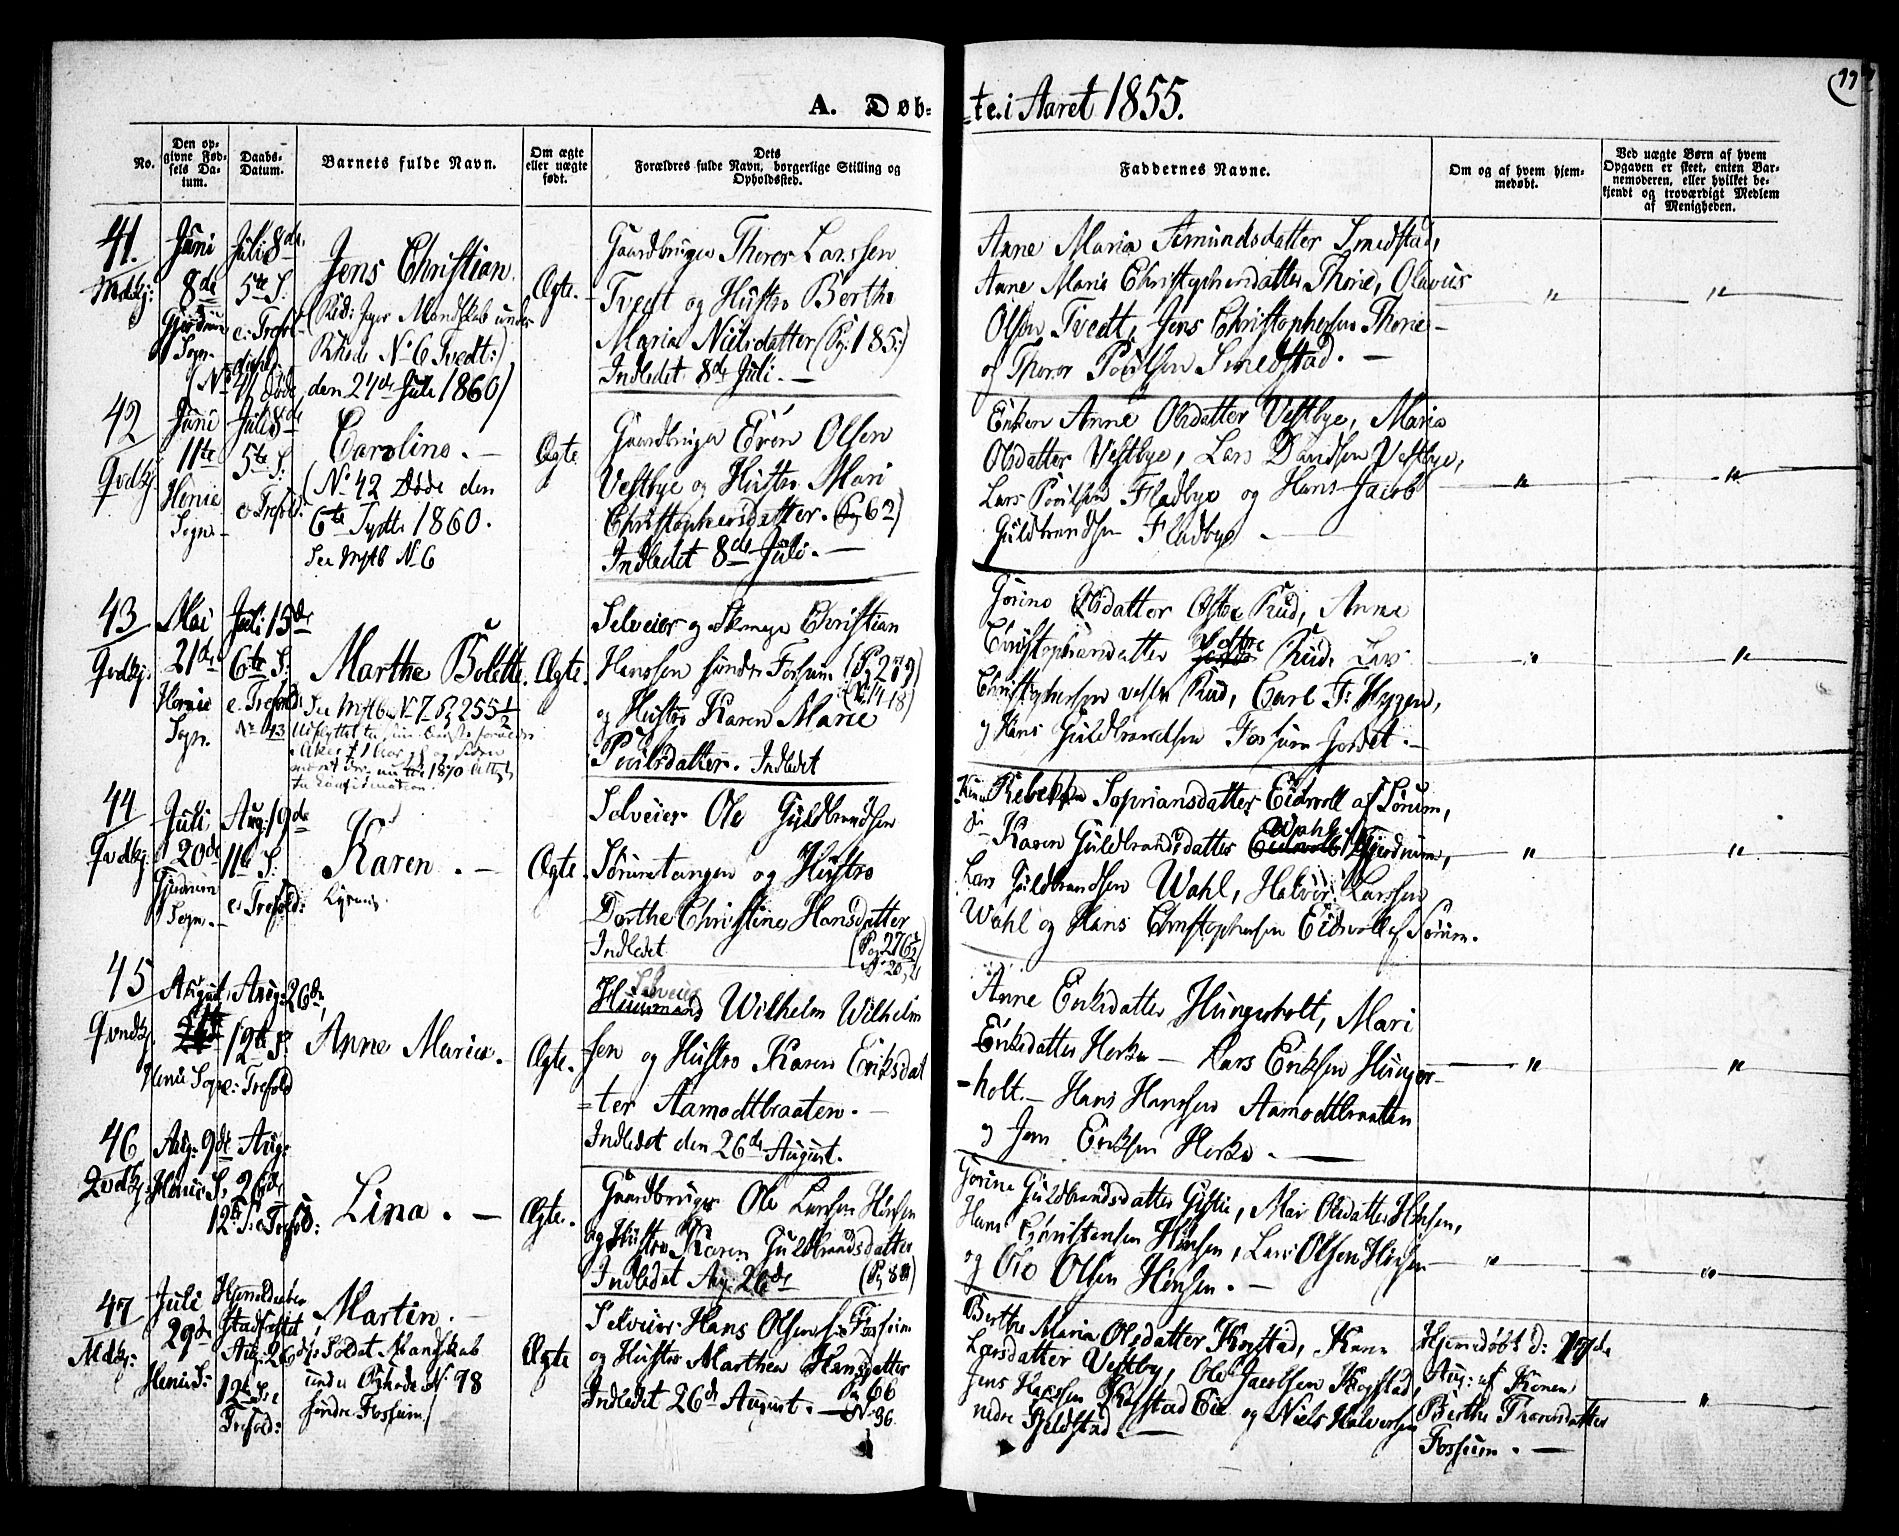 A. Døb-
te i Aaret 1855.
No.
Den op-
givne Fød-
sels Da-
tum.
Daabs-
Datum.
Barnets fulde Navn.
Om ægte
eller uægte
født.
Dets
Forældres fulde Navn, borgerlige Stilling og
Opholdssted.
Faddernes Navne.
Om og af hvem hjem-
medøbt.
Ved uægte Børn af hvem
Opgaven er skeet, enten Bar-
nemoderen, eller hvilket be-
kjendt og troværdigt Medlem
af Menigheden.
41.
Mdkj:
Juni
8de
Gjerdrum
Sogn.
Juli 8de
5te S.
e: Trefol-
dighed
Jens Christian.
Mandskab under
No 6 Tvedt:)
(No 41 Døde
den 24de Juli 1860)
Ægte.
Gaardbruger Thoror Larssen
Tvedt og Hustro Berthe
Maria Nielsdatter (Pg: 185:)
Indledet 8de Juli.
Anne Maria Amundsdatter Smedstad,
Anne Maria Christophersdatter Thorie, Olavus
Olsen Tvedt, Jens Christophersen Thorie
og Thoror Poulsen Smedstad.
"
"
42
Qvdkj.
Juni
11te
Henie
Sogn
Juli 8de
5te S:
e. Trefold:
Caroline.
(No 42 Døde den
6te 1860.
See No 6
Ægte
Gaardbruger Olsen
Vestbye og Hustro Mari
Christophersdatter. (Pg 62)
Indledet 8de Juli.
Enken Anne Olsdatter Vestbye, Maria
Olsdatter Vestbye, Lars Vestbye,
Lars Poulsen Fladbye og Hans Jacob
Guldbrandsen Fladbye
"
"
43
Qvdkj.
Mai
21de
Henie
Sogn.
Juli 15de
6te S:
e. Trefold:
No 43
Marthe Bolette.
See No 7 Pg 255 1/2
1870
Confirmation.
Ægte.
Selveier og Christian
Hanssen søndre Fossum (Pg 279)
(No 17-18)
og Hustro Karen Marie
Poulsdatter. Indledet
Gorine Olsdatter Østre Rud, Anne
Christophersdatter Østre Rud, Lars
Christophersen vestre Rud, Carl F: Hyggen,
og Hans Guldbrandsen Fossum Jordet.
"
"
44
Qvdkj.
Juli
20de
Gjerdrum
Sogn.
Aug: 19de
11te S.
e. Trefold:
Karen.
Ægte.
Selveier Ole Guldbrandsen
Sørumtangen og Hustro
Dorthe Christine Hansdatter
Indledet
(Pag 276 1/2
No 20,
Kone Rebekka Sopriansdatter Eidsvoll af Sørum,
Karen Guldbrandsdatter Wahl Gjerdrum,
Lars Guldbrandsen Wahl, Halvor Larssen
Wahl og Hans Christophersen Eidsvoll af Sørum.
"
"
45
Qvndkj.
August
Henie Sogn
Aug: 26de
12te S.
e: Trefold
Anne Maria.
Ægte.
Selveier
Huusmand Wilhelm Wilhelm
sen og Hustro Karen Eriksdat
ter Aamodtbraaten.
Indledet den 26de August.
Anne Eriksdatter Hungerholt, Mari
Eriksdatter Herke — Lars Eriksen Hunger-
holt. — Hans Hanssen Aamodtbraaten
og Jens Eriksen Herke.
"
"
46
Qvdkj.
Aug: 9de
Henie S.
Aug:
26de
12te S. e Trefold:
Lina.
Ægte.
Gaardbruger Ole Larssen Hønsen
og Hustro Karen Guldbrandsdatter
Indledet Aug 26de
(Pg 80)
Gorine Guldbrandsdatter Mari Olsdatter Hønsen,
Hans Christensen Hønsen, Lars Olsen Hønsen
og Ole Olsen Hønsen.
"
"
47
Mdkj:
Juli
29de
Henie S:
Hjemmedaaben
Stadfæstet
Aug: 26de
12te S. e
Trefold:
Martin.
Soldat Mandskab
under No 98
søndre Fossum)
Ægte
Selveier Hans Olsen Fossum
og Hustro Marthea Hansdatter
Pg 66
No 36.
Indledet 26de August.
Berthe Maria Olsdatter Kogstad, Karen
Larsdatter Vestby, Ole Jacobsen Kogstad,
Jens Hanssen Kogstad Eie og Niels Halvorsen
nedre Fjeldstad.
Hjemmedøbt d:
Aug: af Konen
Berthe Thorersdatter
Fossum.
"